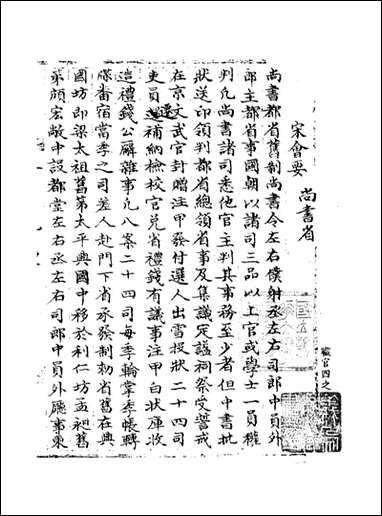 宋會要　尚書省
尚書都省舊制尚書令左右僕射丞左右司郎中員外
郎主都省事國朝以諸司三品以上官或學士一員權
判凡尚書諸司悉他官主判其事務至少者但中書批
狀送印領判都省總領省事及集議定謚祠祭受誓戒
在京文武官封贈注甲發付選人出雪投狀二十四司
吏員遷補納檢校官兌省禮錢有議事注甲白狀庫收
造禮錢公廨雜事凡八案二十四司每季輪掌季帳轉
牒番宿當季之司差人赴門下省承發制勑省舊在興
國坊即梁太祖舊第太平興國中移於利仁坊孟昶舊
第頗宏敞中設都堂左右丞左右司郎中員外廳事東
職官四之